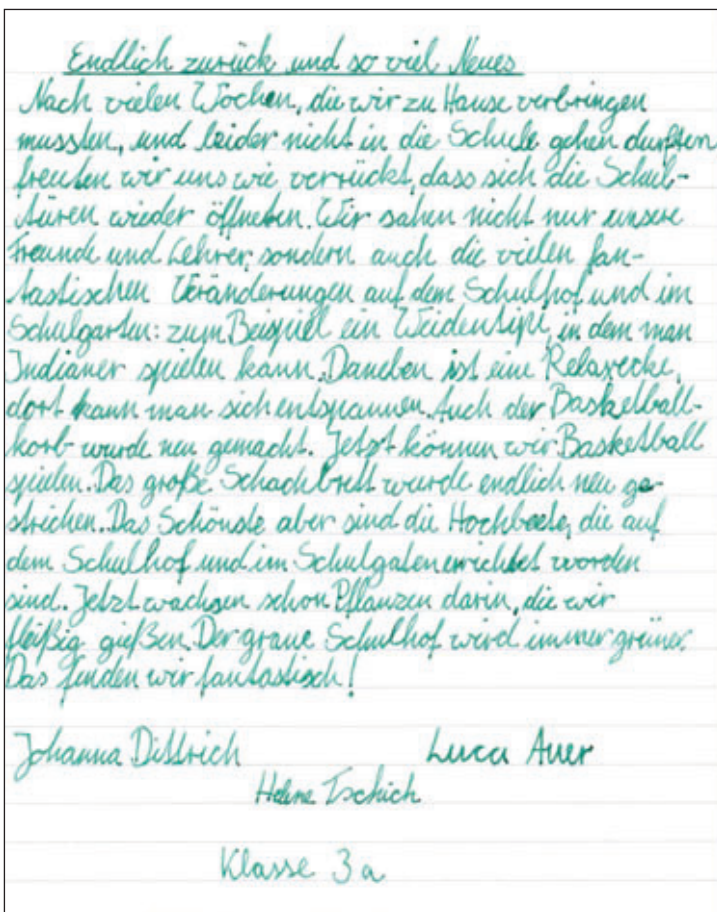 Endlich zurück und so viel Neues
Nach vielen Wochen, die wir zu Hause verbringen
mussten, und leider nicht in die Schule gehen durften
freuten wir uns wie verrückt, dass sich die Schul-
türen wieder öffneten. Wir sahen nicht nur unsere
Freunde und Lehrer, sondern auch die vielen fan-
tastischen Veränderungen auf dem Schulhof und im
Schulgarten: zum Beispiel ein Weidentipi, in dem man
Indianer spielen kann. Daneben ist eine Relaxecke,
dort kann man sich entspannen. Auch der Basketball-
korb wurde neu gemacht. Jetzt können wir Basketball
spielen. Das große Schachbrett wurde endlich neu ge-
strichen. Das Schönste aber sind die Hochbeete, die auf
dem Schulhof und im Schulgaten errichtet worden
sind. Jetzt wachsen schon Pflanzen darin, die wir
fleißig gießen. Der graue Schulhof wird immer grüner.
Das finden wir fantastisch!
Johanna Dittrich Luca Auer
Helene Tschich
Klasse 3a